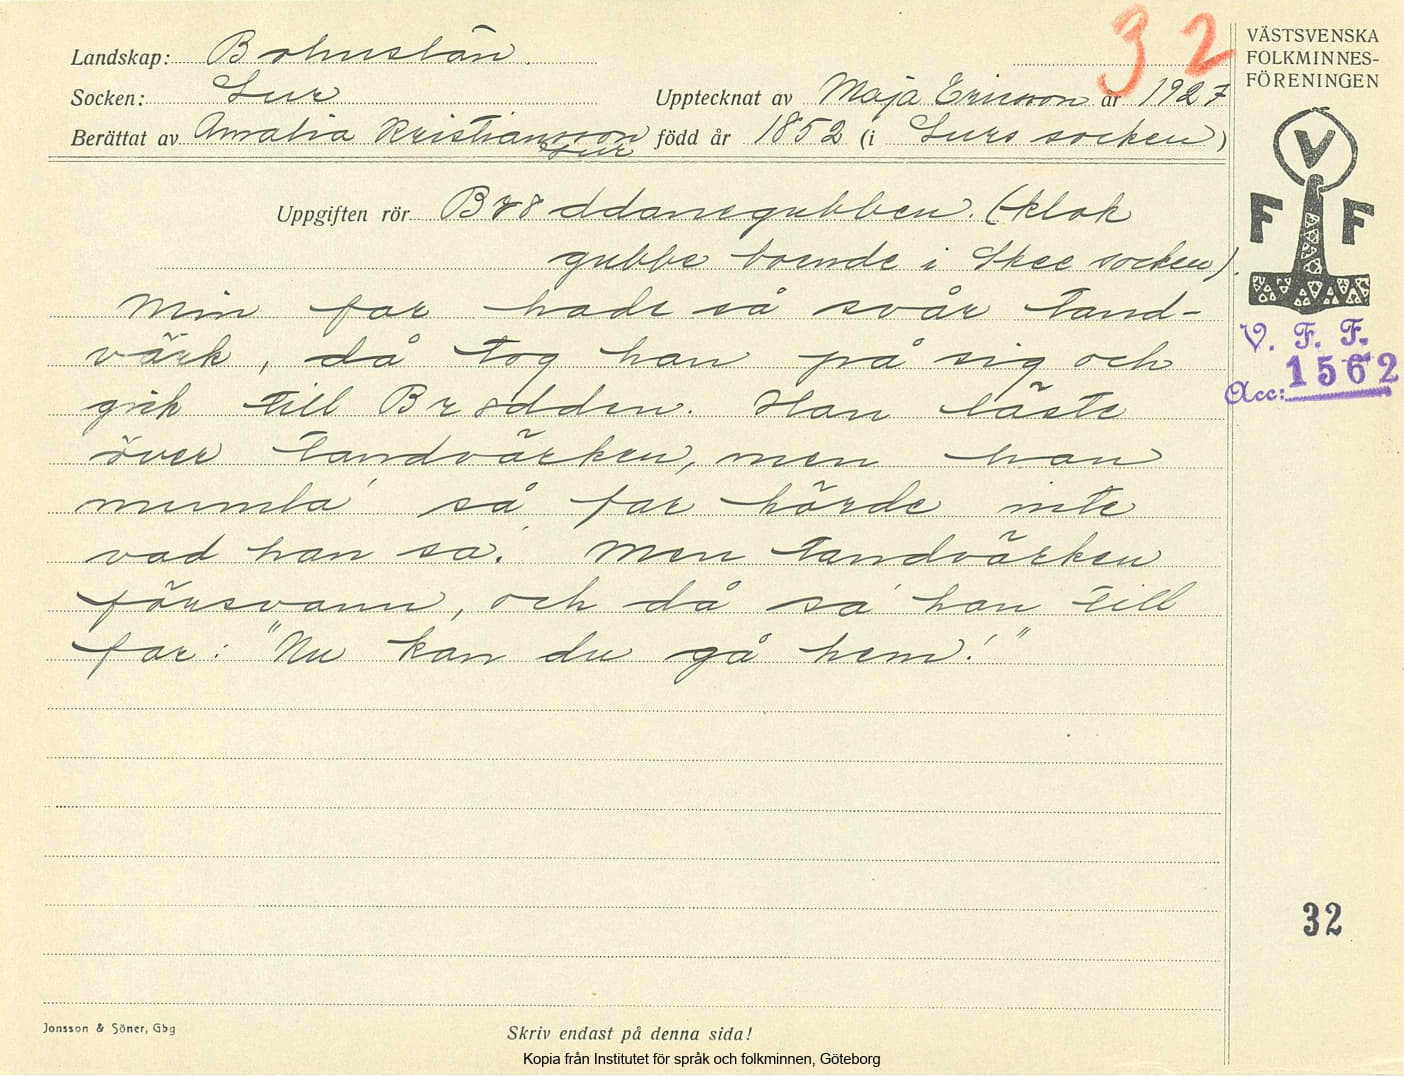 32
VÄSTSVENSKA
FOLKMINNES-
FÖRENINGEN
Landskap: Bohuslän.
Socken: Lur
Upptecknat av Maja Ericson år 1927
Berättat av Amalia Kristiansson född år 1852 (i Lurs socken)
Lur
Uppgiften rör Bröddanegubben. (klok
gubbe boende i Skee socken).
Min far hade så svår tand-
värk, då tog han på sig och
gick till Brödden. Han läste
över tandvärken, men han
mumla' så far hörde inte
vad han sa'. Men tandvärken
försvann, och då sa' han till
far: "Nu kan du gå hem!"
V F F
V. F. F.
Acc: 1562
32
Jonsson & Söner, Gbg
Skriv endast på denna sida!
Kopia från Institutet för språk och folkminnen, Göteborg